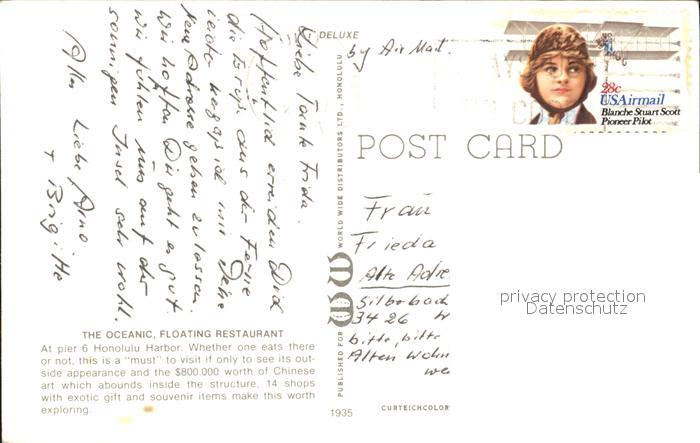 Liebe Tante Frida.
Hoffentlich erreichen Dich
die Grüße aus der Ferne
leider vergaß ich mir Deine
Neue Adresse geben zu lassen.
Wir hoffen Dir geht es gut.
Wir fühlen uns auf der
sonnigen Insel sehr wohl.
Alles Liebe Arno
+ Brigitte
THE OCEANIC, FLOATING RESTAURANT
At pier 6 Honolulu Harbor. Whether one eats there
or not, this is a "must" to visit if only to see its out-
side appearance and the $800.000 worth of Chinese
art which abounds inside the structure. 14 shops
with exotic gift and souvenir items make this worth
exploring.
DELUXE
PUBLISHED FOR WORLD WIDE DISTRIBUTORS LTD., HONOLULU
1935
CURTEICHCOLOR
by Air Mail.
28c
USAirmail
Blanche Stuart Scott
Pioneer Pilot
POST CARD
Frau
Frieda
Alte Adre
Silberbach
3426 W
bitte, bitte
Alten Wohn
we
privacy protection
Datenschutz